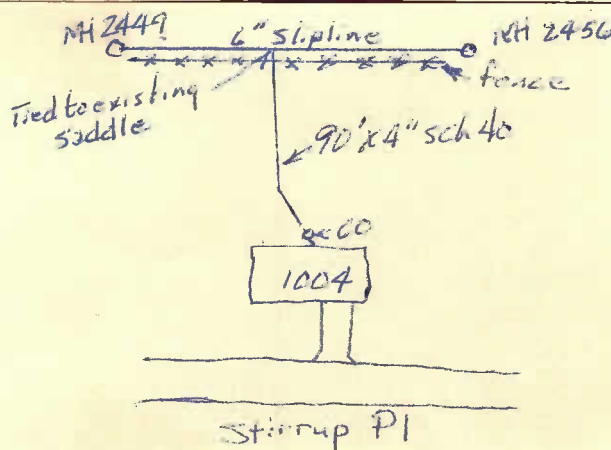 MH 2449
6" slipline
MH 2456
fence
Tied to existing
saddle
90' x 4" sch 40
CO
1004
Stirrup Pl